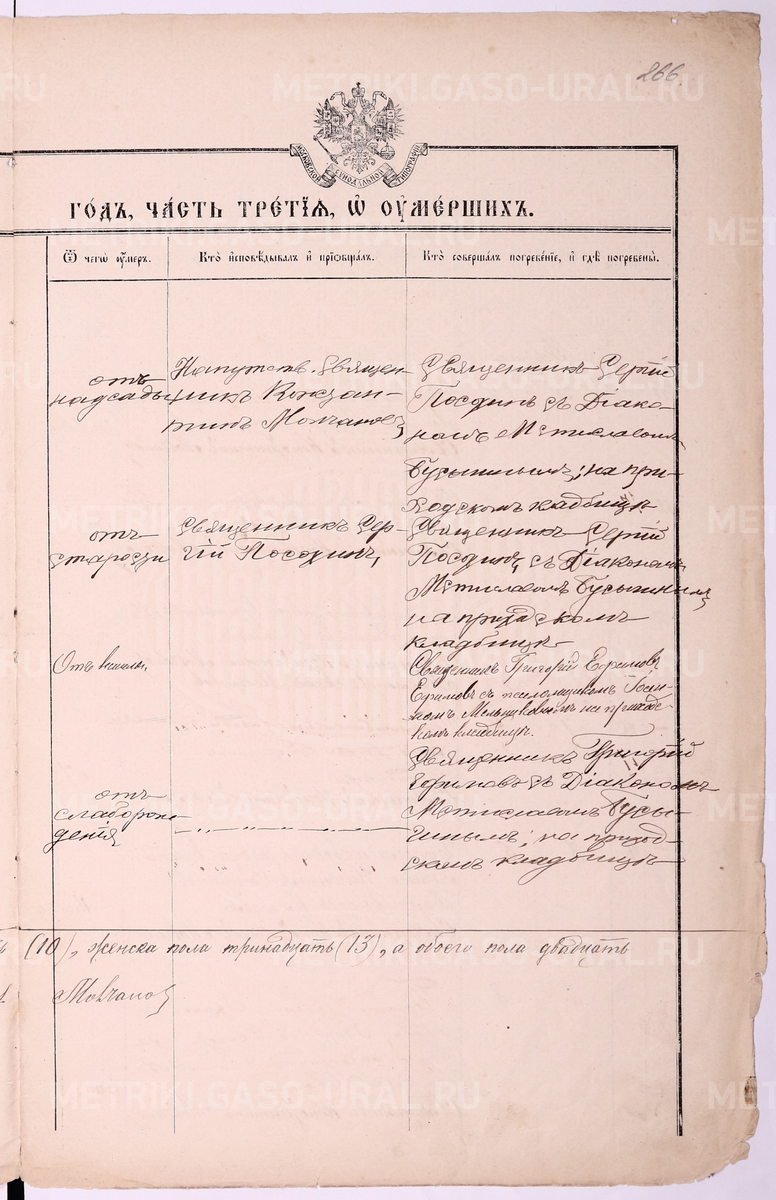 266
МОСКОВСКОЙ СѴНОДАЛЬНОЙ ТИПОГРАФІИ
ГО́ДЪ, ЧА́СТЬ ТРЕ́ТІѦ, Ѡ҆ ОУ҆МЕ́РШИХЪ.
Ѿ чегѡ̀ оу҆́меръ.
Кто̀ и҆сповѣ́дывалъ и҆ прїѡбща́лъ.
Кто̀ соверша́лъ погребе́нїе, и҆ гдѣ̀ погребены̀.
отъ
надсады
Напутств. Священ-
никъ Констан-
тинъ Молчановъ
Священникъ Сергій
Посохинъ съ Діако-
номъ Мстиславомъ
; на при-
ходскомъ кладбищѣ
отъ
старости
Священникъ Сер-
гій Посохинъ,
Священникъ Сергій
Посохинъ, съ Діакономъ
Мстиславомъ
на приходскомъ
кладбищѣ
Отъ
Священникъ Григорій Ефимовъ
Ефимовъ съ псаломщикомъ Іоан-
номъ Мельниковымъ на приход-
комъ кладбищѣ.
отъ
слаборож-
денія
Священникъ Григорій
Ефимовъ съ Діакономъ
Мстиславомъ
; на приход-
скомъ кладбищѣ
(10), женска пола тринадцать (13), а обоего пола двадцать
Молчановъ
METRIKI.GASO-URAL.RU